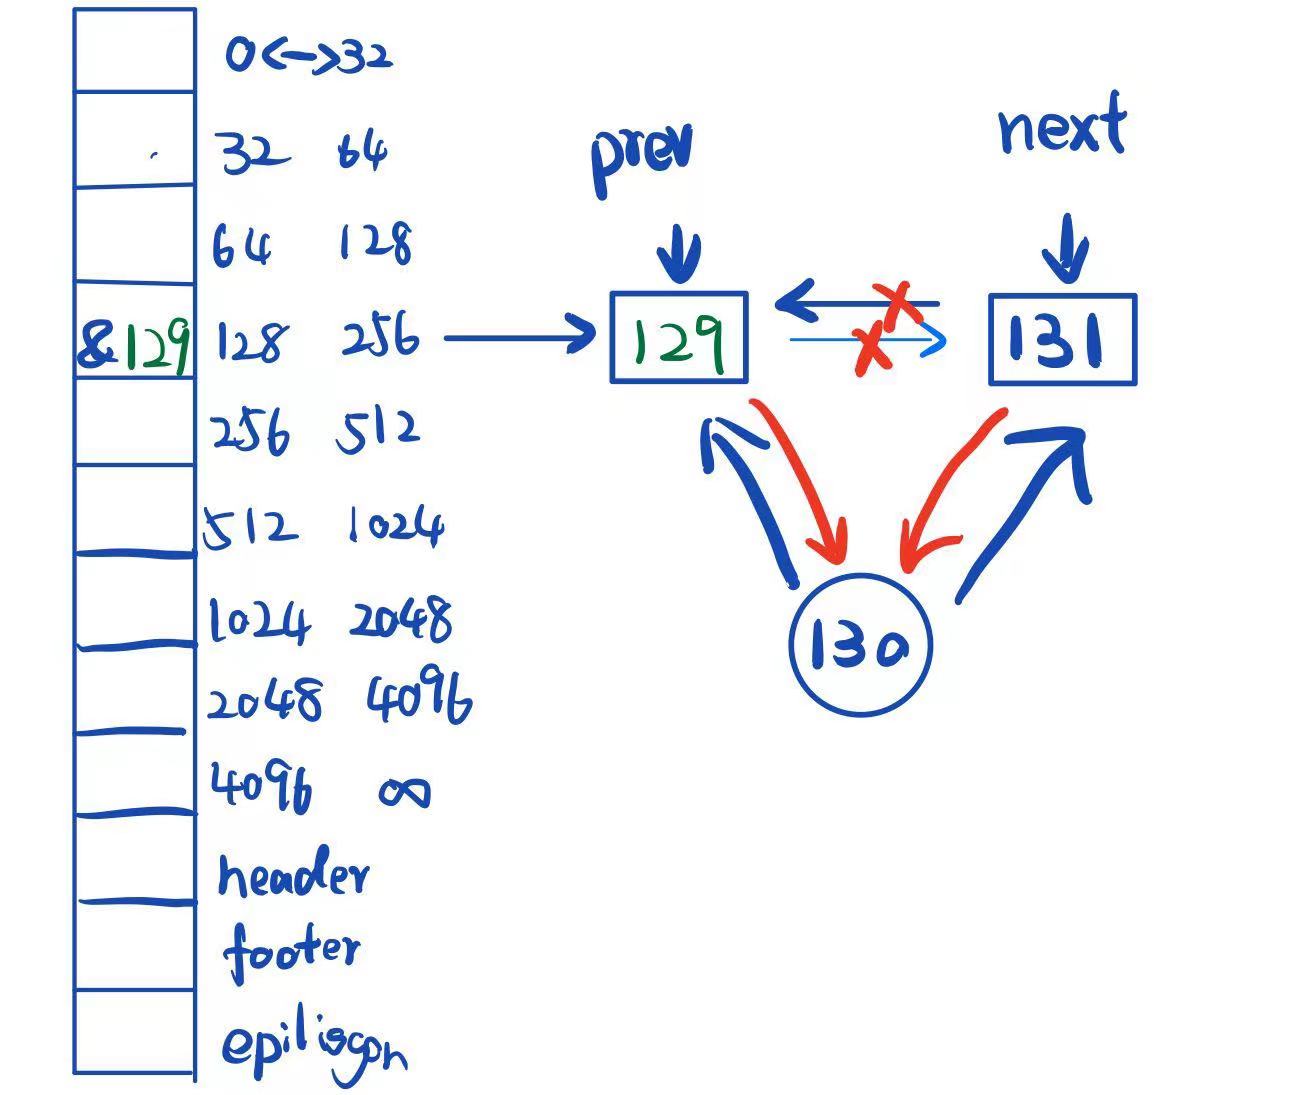 0<->32
32 64
64 128
&129 128 256
256 512
512 1024
1024 2048
2048 4096
4096 ∞
header
footer
epilisgon
prev
next
129
131
130